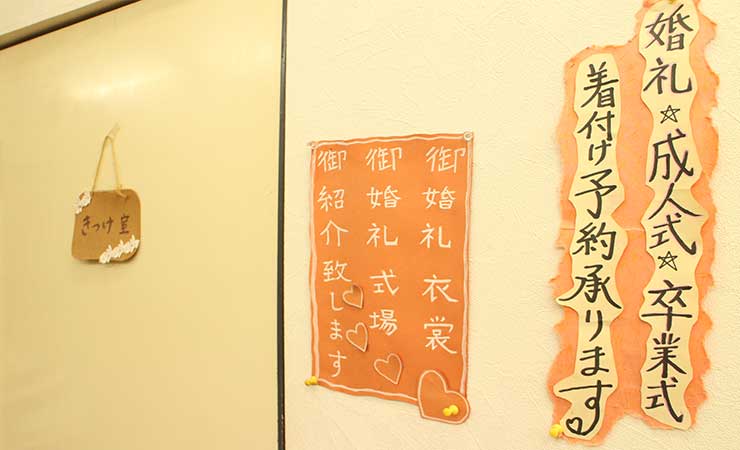 きつけ室
御婚礼衣裳
御婚礼式場
御紹介致します
婚礼☆成人式☆卒業式
着付け予約承ります